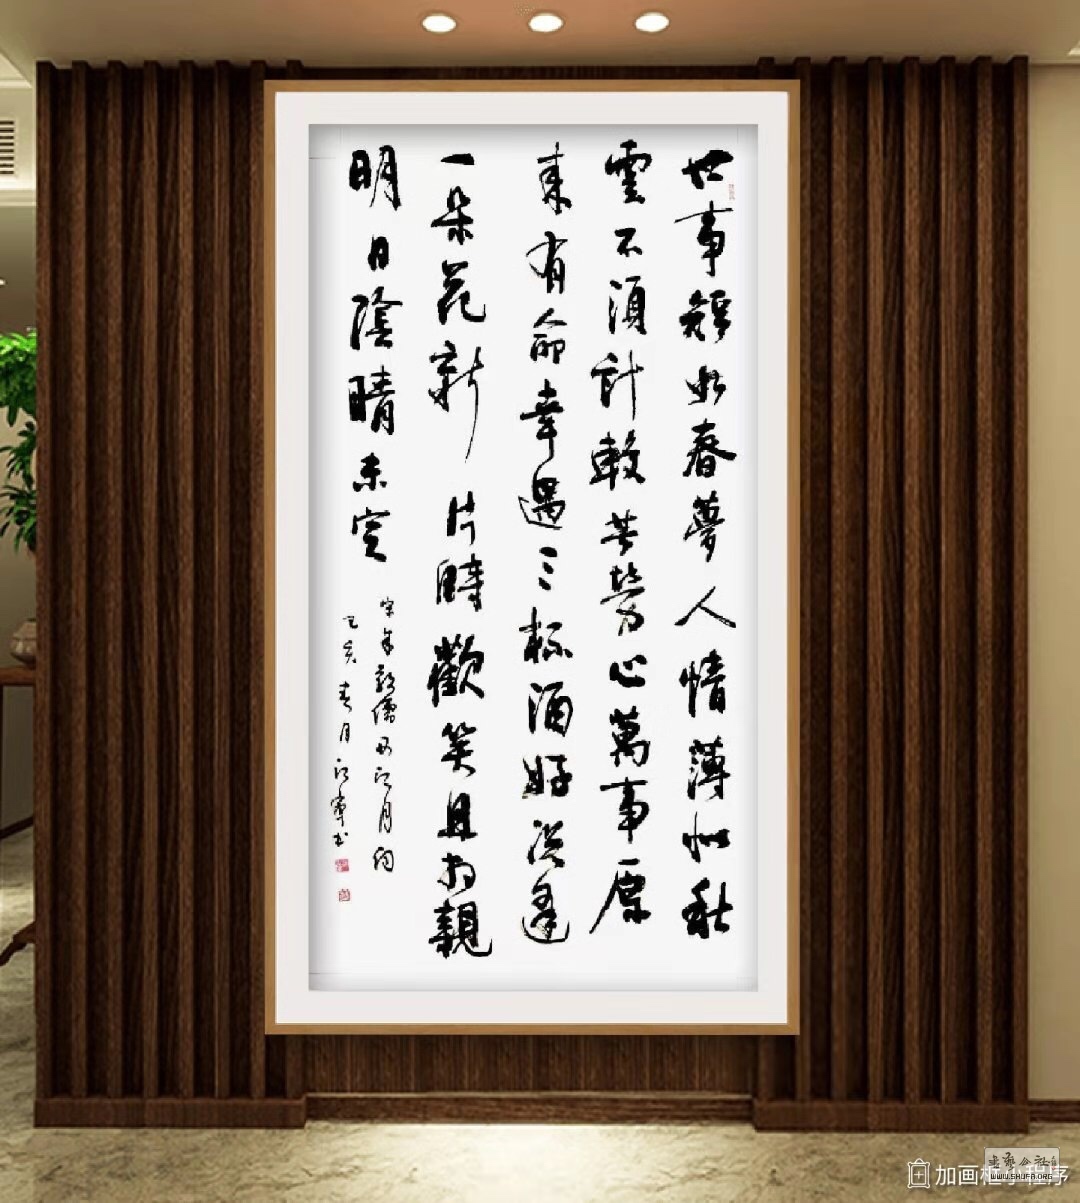 世事短如春夢人情薄似秋
雲不須計較苦勞心萬事原
来有命幸遇三杯酒好况逢
一朵花新片時歡笑且相親
明日陰晴未定
宋朱敦儒西江月词
己亥春月
书艺公社
WWW.SHUFA.ORG
加画框小程序